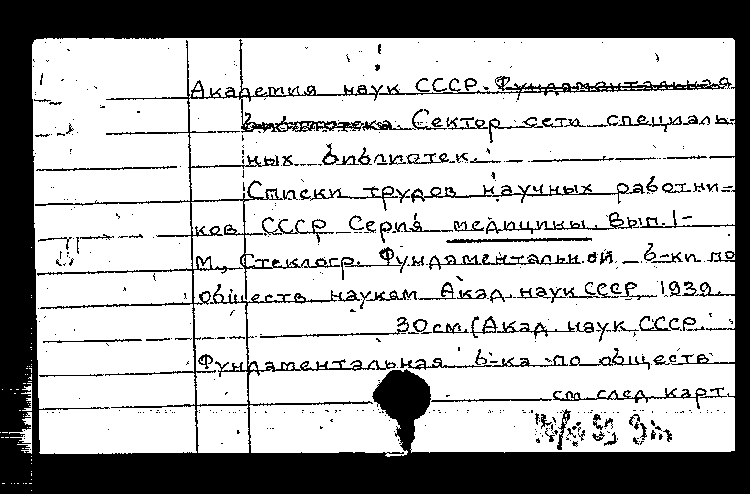 Академия наук СССР. Фундаментальная
библиотека. Сектор сети специаль-
ных библиотек.
Списки трудов научных работни-
ков СССР Серия медицины. Вып. 1-
М., Стеклогр. Фундаментальной б-ки по
обществ наукам Акад. наук СССР, 1939.
30 см. (Акад. наук СССР.
Фундаментальная б-ка по обществ
см след карт.